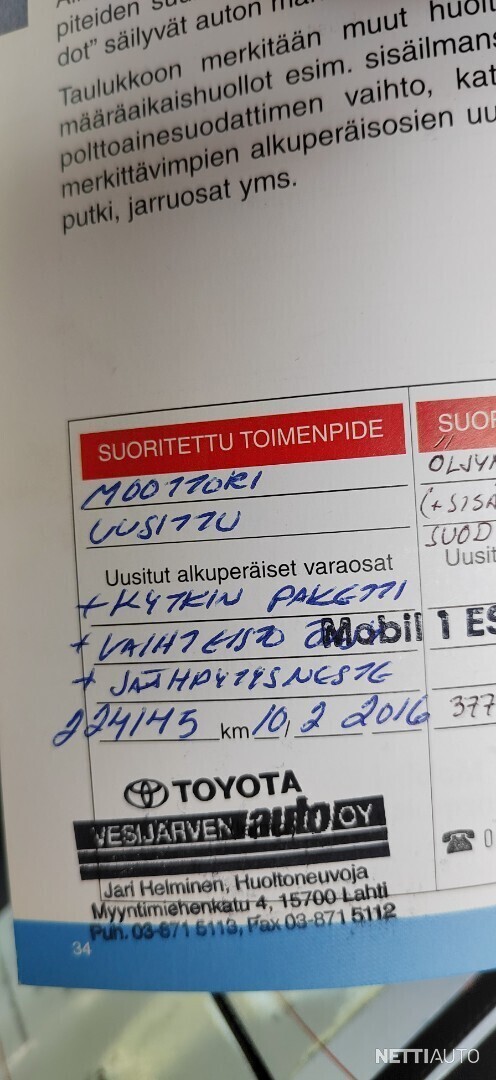 piteiden
dot" säilyvät auton
Taulukkoon merkitään muut
määräaikaishuollot esim. sisäilmans
polttoainesuodattimen vaihto, kat
merkittävimpien alkuperäisosien uu
putki, jarruosat yms.
SUORITETTU TOIMENPIDE
MOOTTORI
UUSITTU
Uusitut alkuperäiset varaosat
+ KYTKIN PAKETTI
+ VAIHTEISTO
+ JÄÄHDYTYSNESTE
224145 km 10/2 2016
TOYOTA
VESIJÄRVEN auto OY
Jari Helminen, Huoltoneuvoja
Myyntimiehenkatu 4, 15700 Lahti
Puh. 03-871 5113, Fax 03-871 5112
34
SUOR
ÖLJYN
(+SISÄ
SUOD
Uusit
Mobil 1 ES
377
☎ 0
NETTIAUTO